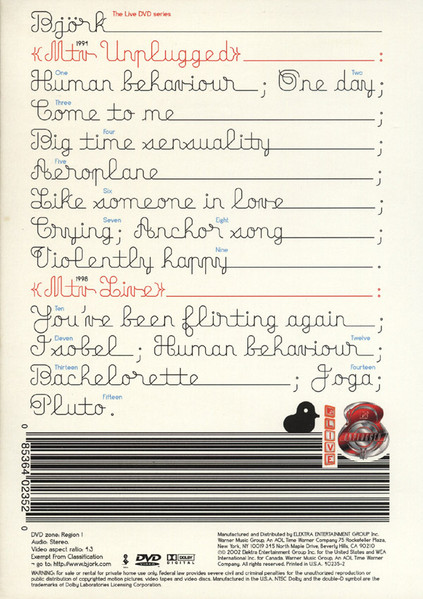 Björk The Live DVD series
«Mtv Unplugged» 1994 :
One Two
Human behaviour ; One day;
Three
Come to me ;
Four
Big time sensuality ;
Five
Aeroplane ;
Six
Like someone in love ;
Seven Eight
Crying; Anchor song ;
Nine
Violently happy :
«Mtv Live» 1998 :
Ten
You've been flirting again ;
Eleven Twelve
Isobel ; Human behaviour ;
Thirteen Fourteen
Bachelorette ; Joga;
Fifteen
Pluto.
LIVE
0 85364 02352 0
DVD zone: Region 1
Audio: Stereo.
Video aspect ratio: 4:3
Exempt from Classification
¬ go to: http://www.bjork.com
DVD VIDEO
DOLBY DIGITAL
Manufactured and Distributed by ELEKTRA ENTERTAINMENT GROUP Inc.
Warner Music Group. An AOL Time Warner Company 75 Rockefeller Plaza,
New York, NY 10019 345 North Maple Drive, Beverly Hills, CA 90210
© 2002 Elektra Entertainment Group Inc. for the United States and WEA
International Inc. for Canada. Warner Music Group. An AOL Time Warner
Company. All rights reserved. Printed in U.S.A. 40235-2
WARNING: For sale or rental for private home use only, federal law provides severe civil and criminal penalties for the unauthorized reproduction or
public distribution of copyrighted motion pictures, video tapes and video discs. Manufactured in the U.S.A. NTSC Dolby and the double-D symbol are
trademarks of Dolby Laboratories Licensing Corporation.